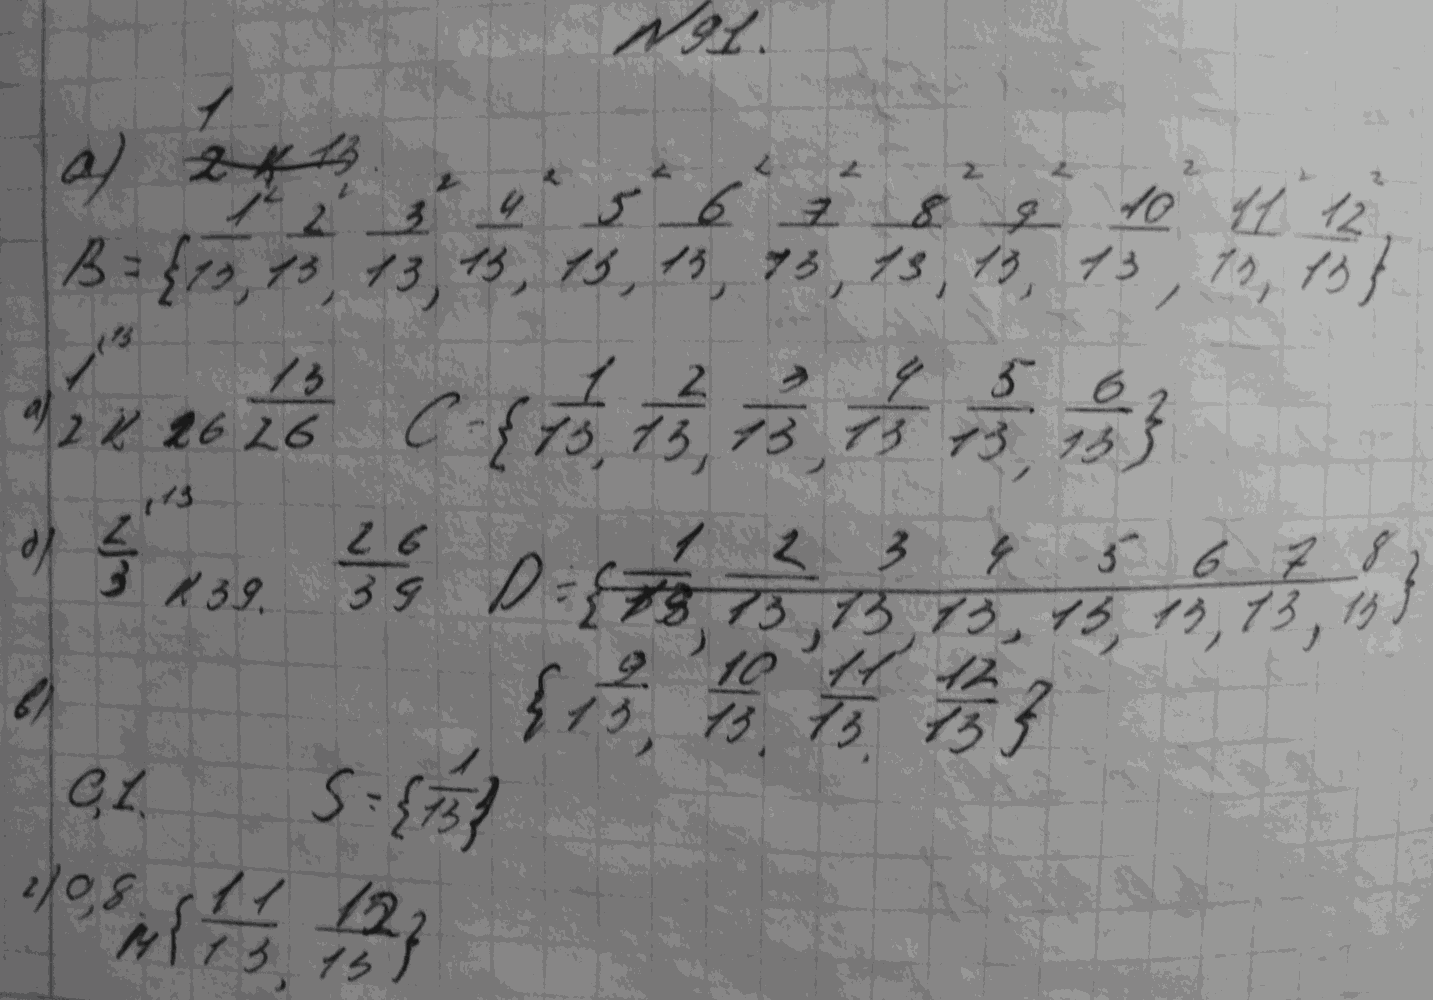 №91.
а) 1/2 К 13
B = {1²/13, 2²/13, 3²/13, 4²/13, 5²/13, 6²/13, 7²/13, 8²/13, 9²/13, 10²/13, 11²/13, 12²/13}
а) 1/2 ·13 К 26 13/26 C = {1/13, 2/13, 3/13, 4/13, 5/13, 6/13}
б) 2/3 ·13 К 39. 26/39 D = {1/13, 2/13, 3/13, 4/13, 5/13, 6/13, 7/13, 8/13}
в) {9/13, 10/13, 11/13, 12/13}
0,1. S = {1/13}
г) 0,8. M {11/13, 12/13}